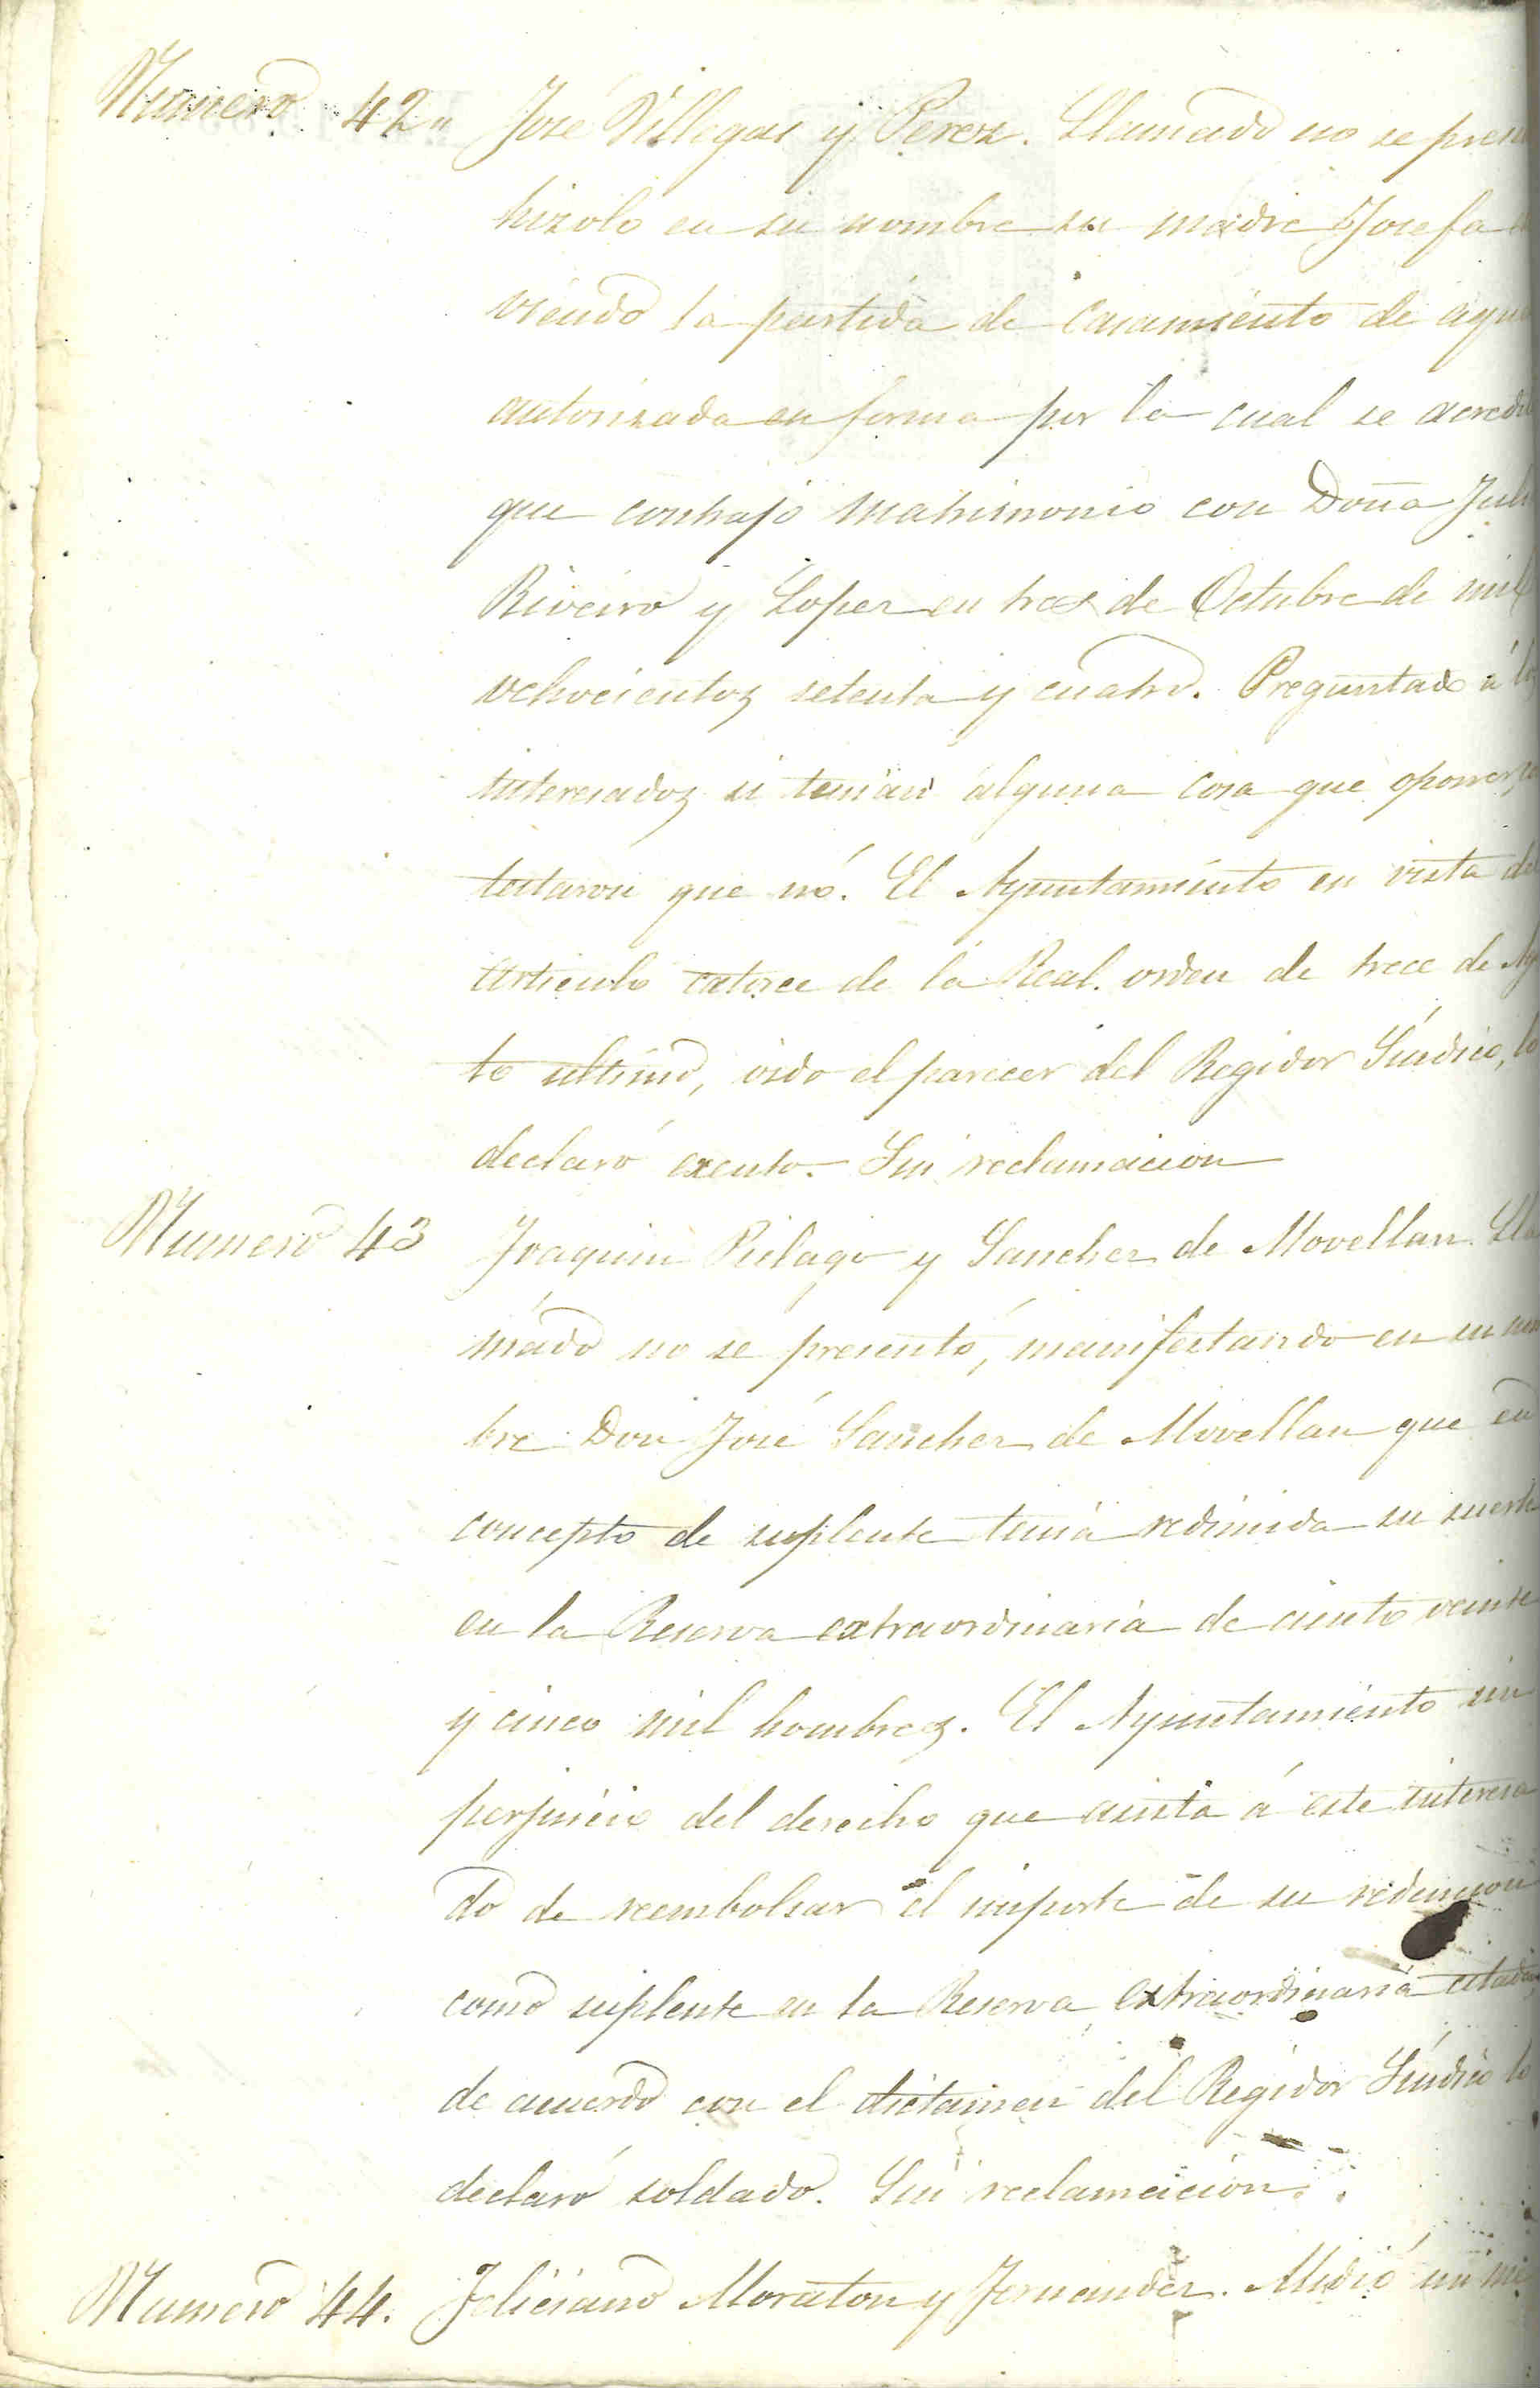 Numero 42" José Villegas y Perez. Llamado no se presen
hizolo en su nombre su madre Josefa
viendo la partida de casamiento de aque
autorizada en forma por la cual se acredi
que contrajó matrimonio con Doña Juli
Riveiro y Lopez en tres de Octubre de mil
ochocientos setenta y cuatro. Preguntado á los
interesados si tenian alguna cosa que oponer,
testaron que nó. El Ayuntamiento en vista del
articulo catorce de la Real orden de trece de Ag
to ultimo, oido el parecer del Regidor Síndico, lo
declaró exento. Sin reclamacion
Numero 43 Joaquin Pielago y Sanchez de Movellan. Lla
mado no se presentó, manifestando en su nom
bre Don José Sanchez de Movellan que en
concepto de suplente tenia redimida su suerte
en la Reserva extraordinaria de ciento veinte
y cinco mil hombres. El Ayuntamiento sin
perjuicio del derecho que asista á este interesa
do de reembolsar el importe de su redencion
como suplente en la Reserva extraordinaria citada,
de acuerdo con el dictamen del Regidor Síndico lo
declaró soldado. Sin reclamacion.
Numero 44. Feliciano Moraton y Fernandez. Midió un me